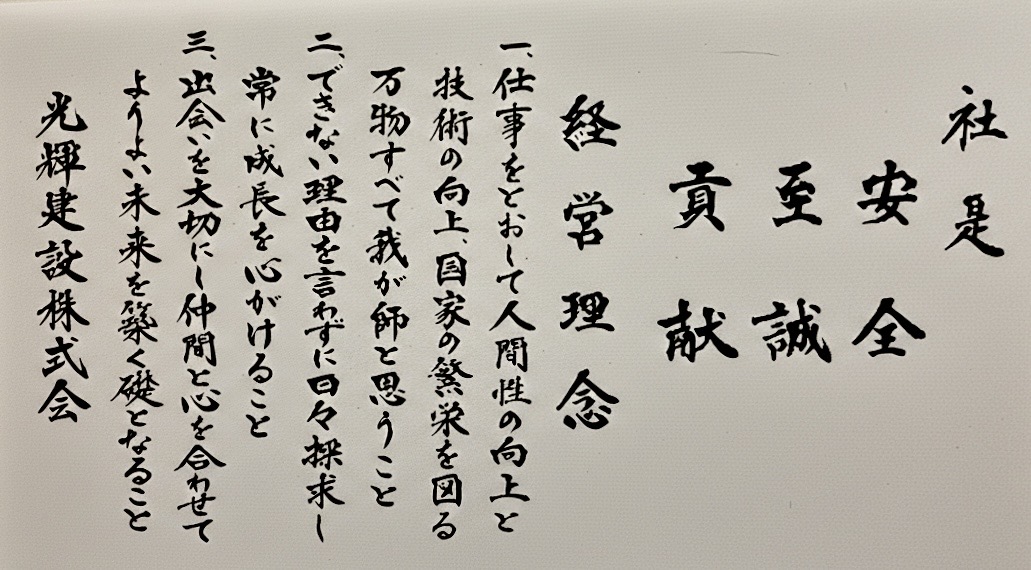 社是
安全
至誠
貢献
経営理念
一、仕事をとおして人間性の向上と
技術の向上、国家の繁栄を図る
万物すべて我が師と思うこと
二、できない理由を言わずに日々探求し
常に成長を心がけること
三、出会いを大切にし仲間と心を合わせて
よりよい未来を築く礎となること
光輝建設株式会